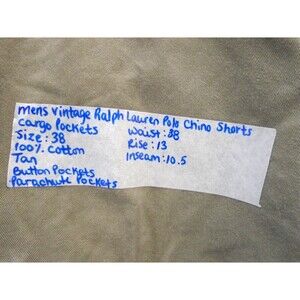 mens vintage Ralph Lauren Polo Chino Shorts
cargo Pockets
Size: 38
100% cotton
Tan
Button Pockets
Parachute Pockets
Waist: 38
Rise: 13
Inseam: 10.5